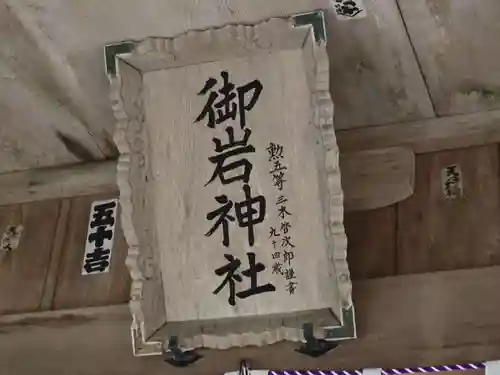 御岩神社
勲五等 三木啓次郎謹書
九十四歳
五十吉